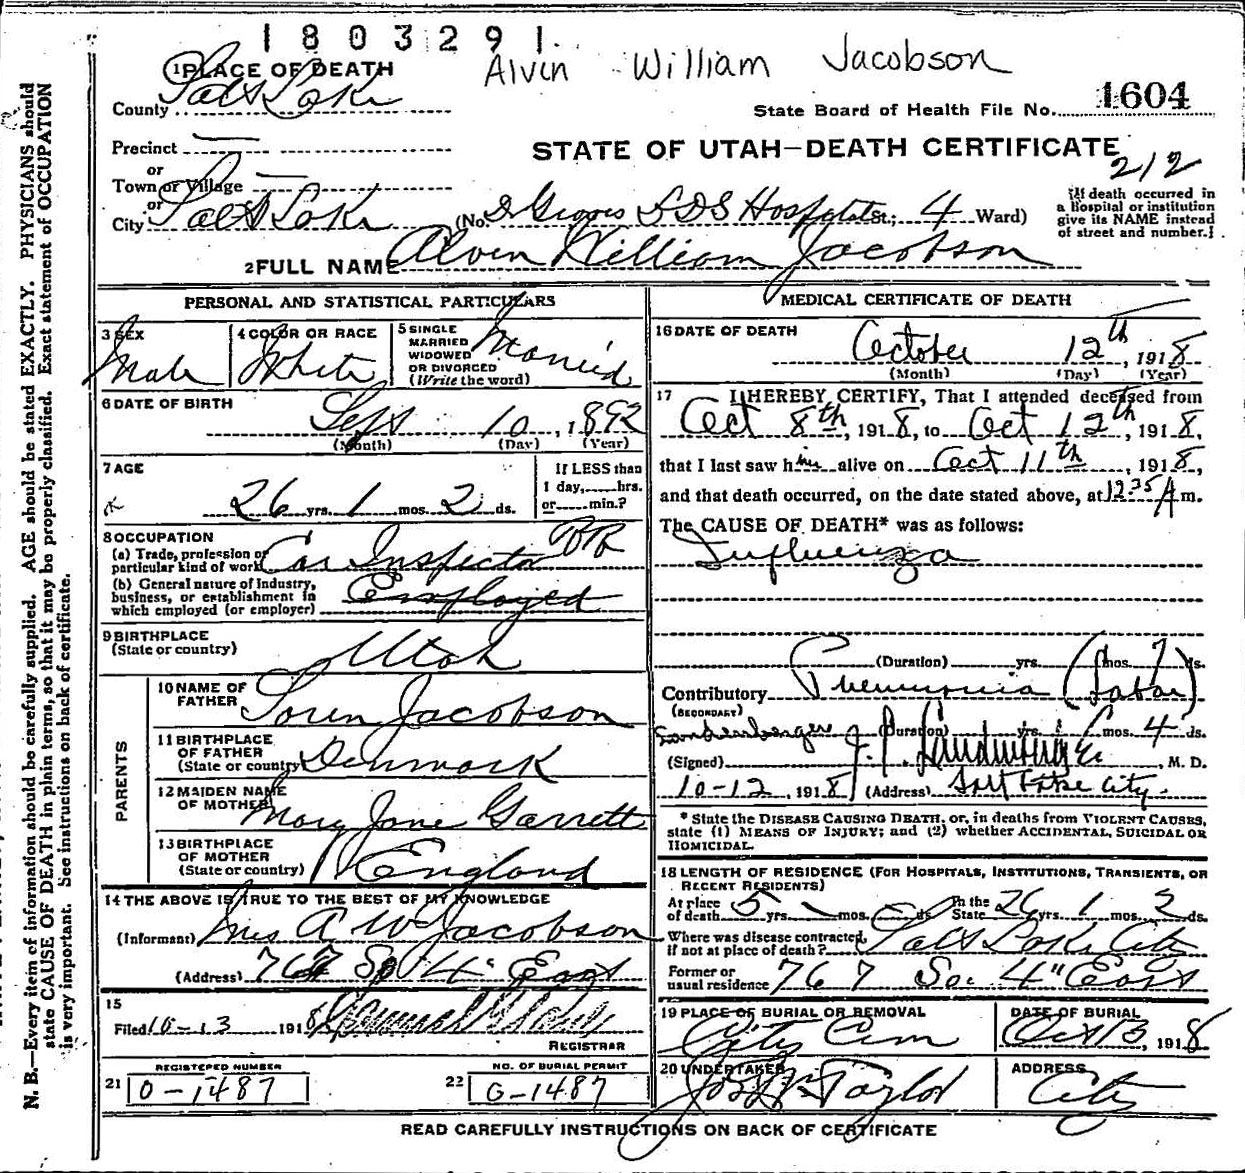 1803291.
Alvin William Jacobson
1 PLACE OF DEATH
County Salt Lake
State Board of Health File No. 1604
Precinct
STATE OF UTAH—DEATH CERTIFICATE
212
or
Town or Village
or
City Salt Lake (No. D Groves LDS Hospital St.; 4 Ward)
[If death occurred in
a Hospital or institution
give its NAME instead
of street and number.]
2 FULL NAME Alvin William Jacobson
PERSONAL AND STATISTICAL PARTICULARS
3 SEX
Male
4 COLOR OR RACE
White
5 SINGLE
MARRIED
WIDOWED
OR DIVORCED
(Write the word)
Married
6 DATE OF BIRTH
Sept 10, 1892
(Month) (Day) (Year)
7 AGE
26 yrs. 1 mos. 2 ds.
If LESS than
1 day, hrs.
or min.?
8 OCCUPATION
(a) Trade, profession or
particular kind of work Car Inspector RR
(b) General nature of Industry,
business, or establishment in
which employed (or employer) Employed
9 BIRTHPLACE
(State or country) Utah
PARENTS
10 NAME OF
FATHER Soren Jacobson
11 BIRTHPLACE
OF FATHER
(State or country) Denmark
12 MAIDEN NAME
OF MOTHER Mary Jane Garrett
13 BIRTHPLACE
OF MOTHER
(State or country) England
14 THE ABOVE IS TRUE TO THE BEST OF MY KNOWLEDGE
(Informant) Mrs A W Jacobson
(Address) 767 So 4" East
15
Filed 10-13 1918
REGISTRAR
REGISTERED NUMBER
21 O-1487
NO. OF BURIAL PERMIT
22 G-1487
MEDICAL CERTIFICATE OF DEATH
16 DATE OF DEATH
October 12th, 1918
(Month) (Day) (Year)
17 I HEREBY CERTIFY, That I attended deceased from
Oct 8th, 1918, to Oct 12th, 1918,
that I last saw him alive on Oct 11th, 1918,
and that death occurred, on the date stated above, at 12 35 A m.
The CAUSE OF DEATH* was as follows:
Influenza
(Duration) yrs. mos. 7 ds.
Contributory Pneumonia (Lobar)
(SECONDARY)
(Duration) yrs. mos. 4 ds.
(Signed) J. P. M. D.
10-12, 1918 (Address) Salt Lake City.
* State the DISEASE CAUSING DEATH, or, in deaths from VIOLENT CAUSES,
state (1) MEANS OF INJURY; and (2) whether ACCIDENTAL, SUICIDAL OR
HOMICIDAL.
18 LENGTH OF RESIDENCE (FOR HOSPITALS, INSTITUTIONS, TRANSIENTS, OR
RECENT RESIDENTS)
At place
of death 5 yrs. mos. ds. In the
State 26 yrs. 1 mos. 2 ds.
Where was disease contracted,
if not at place of death? Salt Lake City
Former or
usual residence 767 So. 4" East
19 PLACE OF BURIAL OR REMOVAL
City Cem
DATE OF BURIAL
Oct 13, 1918
20 UNDERTAKER
Jos Wm Taylor
ADDRESS
City
READ CAREFULLY INSTRUCTIONS ON BACK OF CERTIFICATE
N. B.—Every item of information should be carefully supplied. AGE should be stated EXACTLY. PHYSICIANS should
state CAUSE OF DEATH in plain terms, so that it may be properly classified. Exact statement of OCCUPATION
is very important. See instructions on back of certificate.